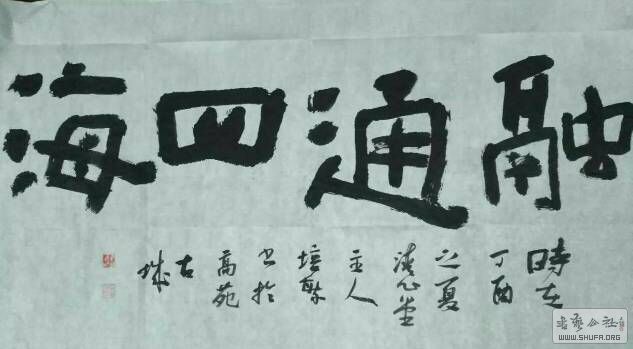 融通四海
時在
丁酉
之夏
清心堂
主人
培聚
书於
高苑
古
城
书艺公社
WWW.SHUFA.ORG